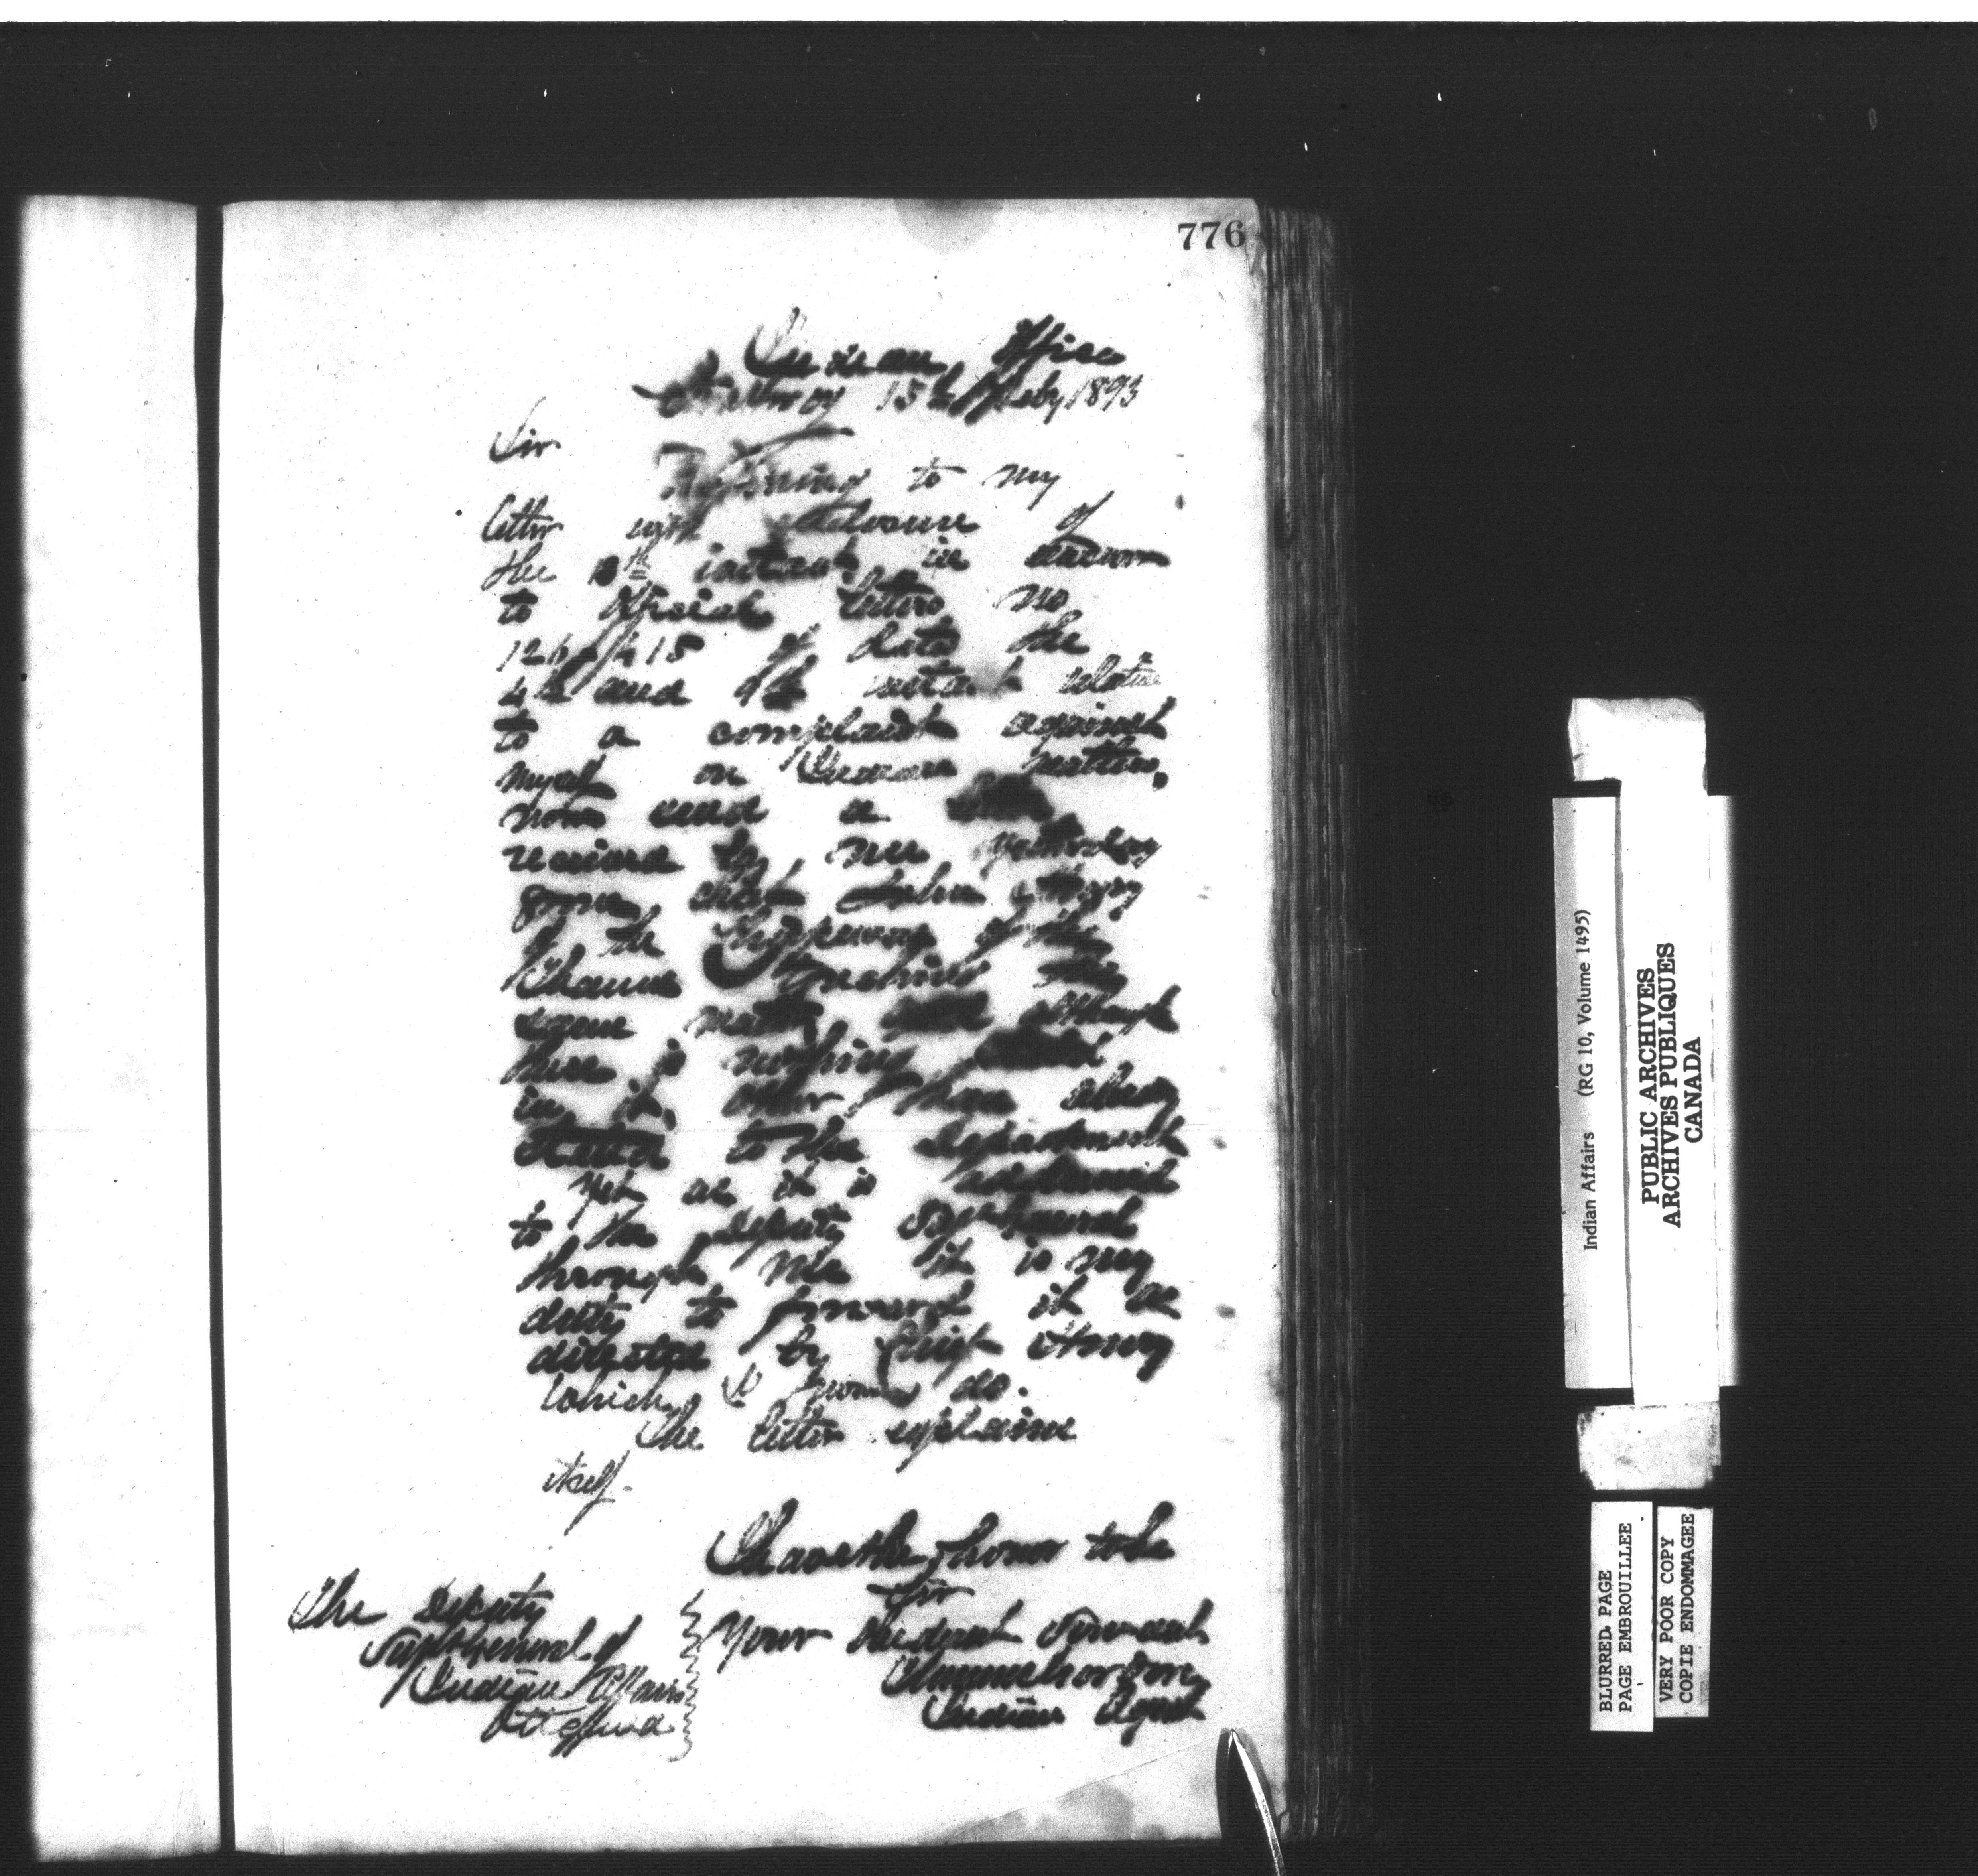 776
Indian Office
Strathroy 15th Feby 1893
Sir
Referring to my
letter with enclosure of
the 13th instant in answer
to official letters no
of date the
4th and 9th instant relative
to a complaint against
myself on Indian matters,
now send a
received by me yesterday
from chief John Henry
of the Chippewas of the
Thames the
same matter although
there is nothing
in it, other than already
stated to the department
Yet as it is addressed
to the deputy Supt General
through me it is my
duty to forward it as
directed by Chief Henry
which I now do.
The letter explains
itself.
I have the honor to be
Sir
Your Obedient Servant
Indian Agent
The Deputy
Supt General of
Indian Affairs
Ottawa
Indian Affairs (RG 10, Volume 1495)
PUBLIC ARCHIVES
ARCHIVES PUBLIQUES
CANADA
BLURRED PAGE
PAGE EMBROUILLEE
VERY POOR COPY
COPIE ENDOMMAGEE